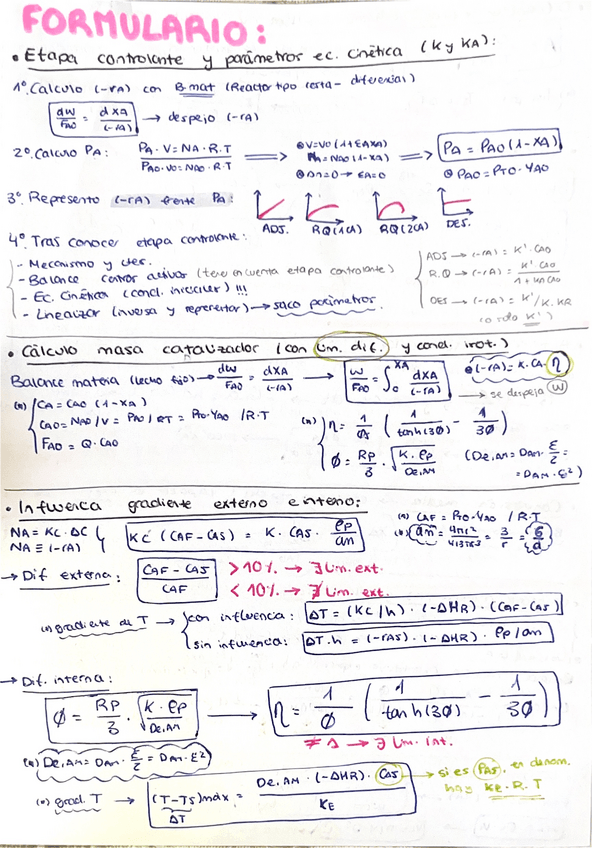 FORMULARIO:
• Etapa controlante y parámetros ec. cinética (K y KA):
1º. Calculo (-rA) con B.mat (Reactor tipo cesta - diferencial)
dW/FAO = dXA/(-rA) → despejo (-rA)
2º. Calculo PA: PA·V = NA·R.T / PAO·V0 = NAO·R.T ⟹ V=V0(1+εAXA) NA = NAO(1-XA) Δn=0 → εA=0 ⟹ PA = PAO(1-XA) PAO = PTO·YAO
3º. Represento (-rA) frente PA: ADS. RQ(1CA) RQ(2CA) DES.
4º. Tras conocer etapa controlante:
- Mecanismo y ctes.
- Balance centros activos (tener en cuenta etapa controlante)
- Ec. Cinética (cond. iniciales) !!!
- Linealizar (inversa y representar) → saco parámetros.
ADS → (-rA) = K'·CAO
R.Q → (-rA) = K'·CAO / 1+KA·CAO
DES → (-rA) = K'/K.KR
(o solo K')
• Cálculo masa catalizador (con lim. dif. y cond. isot.)
Balance materia (lecho fijo) → dW/FAO = dXA/(-rA) → W/FAO = ∫₀^XA dXA/(-rA) (-rA) = K·CA·η → se despeja W
(*) CA = CAO (1-XA)
CAO = NAO/V = PAO/RT = PTO·YAO /R·T
FAO = Q·CAO
(*) η = 1/Ø (1/tanh(3Ø) - 1/3Ø)
Ø = RP/3 · √(K·ρP/De,AM) (De,AM = DAM·ε/τ = = DAM·ε²)
• Influencia gradiente externo e interno:
NA = KC·ΔC
NA ≡ (-rA)
KC (CAF - CAS) = K·CAS·ρP/am
(*) CAF = PTO·YAO /R.T
(*) am = 4πr²/4/3πr³ = 3/r = 6/d
→ Dif externa: CAF - CAS / CAF
> 10% → ∃ Lim. ext.
< 10% → ∄ Lim. ext.
(*) gradiente de T → con influencia: ΔT = (KC/h)·(-ΔHR)·(CAF - CAS)
sin influencia: ΔT.h = (-rAS)·(-ΔHR)·ρP/am
→ Dif. interna:
Ø = RP/3 · √(K·ρP/De,AM) → η = 1/Ø (1/tanh(3Ø) - 1/3Ø)
≠ 1 → ∃ Lim. int.
(*) De,AM = DAM·ε/τ = DAM·ε²
(*) grad. T → (T-TS)máx = De,AM·(-ΔHR)·CAS / KE → si es PAS, en denom.
ΔT
hay KE·R.T